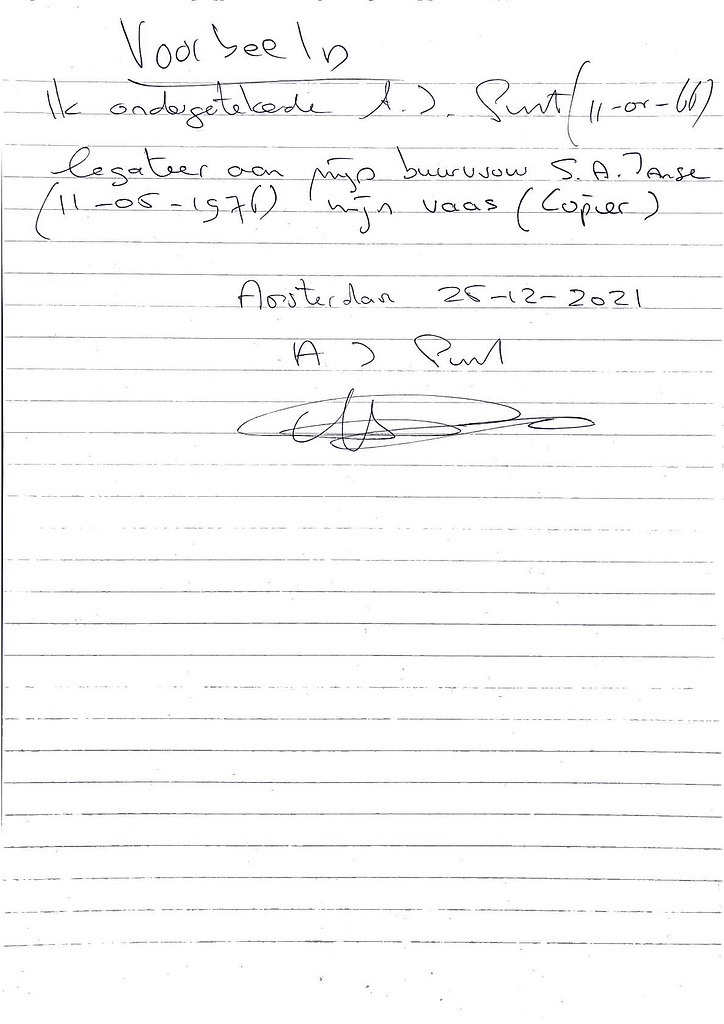 Voorbeeld
Ik ondergetekende A.J. Punt (11-01-66)
legateer aan mijn buurvrouw S.A. Janse
(11-05-1976) mijn vaas (Copier)
Amsterdam 25-12-2021
A J Punt